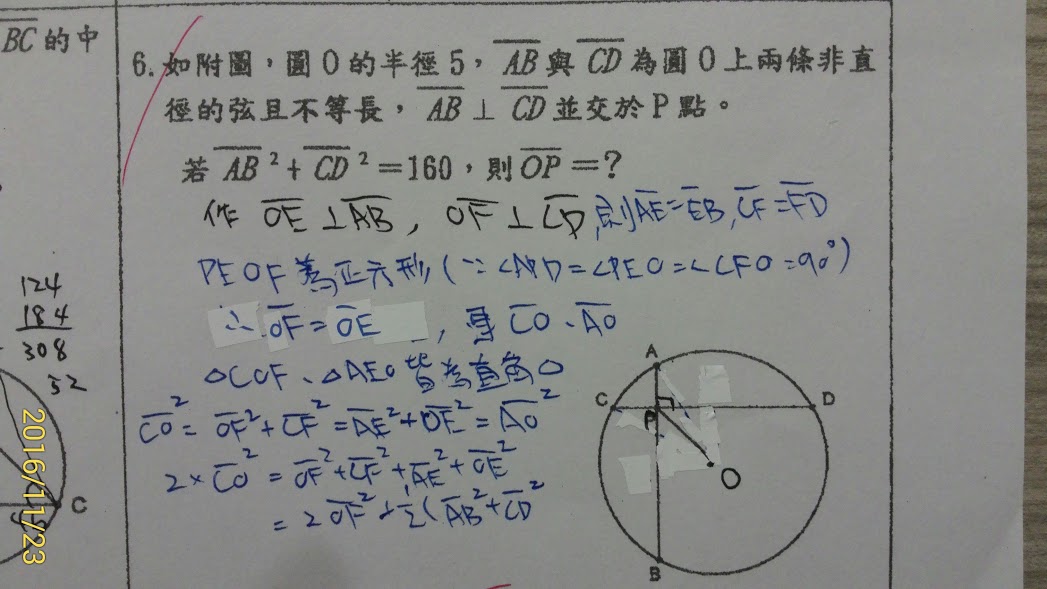 BC的中
6. 如附圖，圓O的半徑5，AB與CD為圓O上兩條非直
徑的弦且不等長，AB⊥CD並交於P點。
若AB²+CD²=160，則OP=?
作 OE⊥AB, OF⊥CD, 則AE=EB, CF=FD
PEOF為正方形(∵∠APD=∠PEO=∠CFO=90°)
∴OF=OE, 連CO、AO
△COF、△AEO皆為直角△
CO²=OF²+CF²=AE²+OE²=AO²
2×CO²=OF²+CF²+AE²+OE²
=2OF²+½(AB²+CD²
124
184
308
52
A
C
D
P
O
B
C
2016/11/23